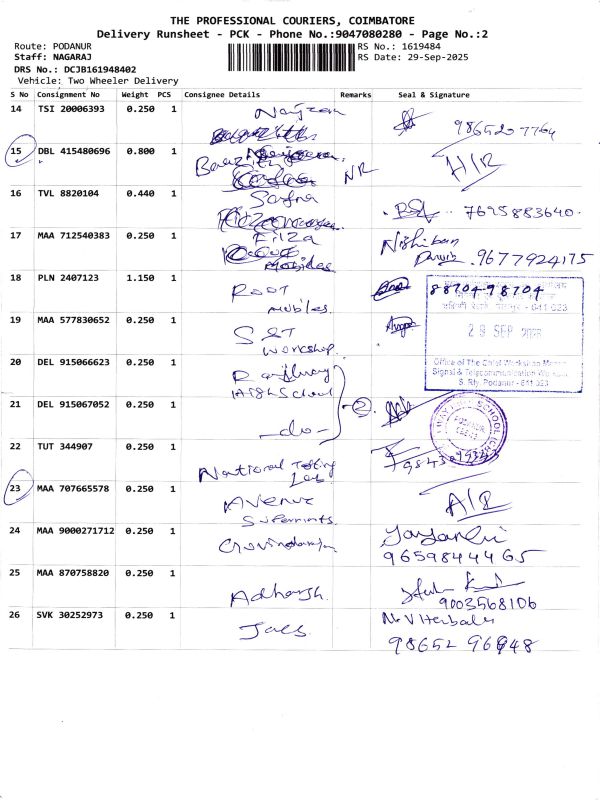 THE PROFESSIONAL COURIERS, COIMBATORE
Delivery Runsheet - PCK - Phone No.:9047080280 - Page No.:2
Route: PODANUR
RS No.: 1619484
Staff: NAGARAJ
RS Date: 29-Sep-2025
DRS No.: DCJB161948402
Vehicle: Two Wheeler Delivery
S No Consignment No Weight PCS Consignee Details Remarks Seal & Signature
14 TSI 20006393 0.250 1
9865207764
15 DBL 415480696 0.800 1 NR
16 TVL 8820104 0.440 1 7695883640
17 MAA 712540383 0.250 1 Fitza
Mobiles 9677924175
18 PLN 2407123 1.150 1 Root 88704-98704
mobiles
19 MAA 577830652 0.250 1 S&T 29 SEP
workshop
Signal & Telecommunication
S. Rly. Podanur - 641 023
20 DEL 915066623 0.250 1 Railway
High School
21 DEL 915067052 0.250 1 -do- 2
22 TUT 344907 0.250 1 National Testing
Lab
23 MAA 707665578 0.250 1 Avenue
A/R
24 MAA 9000271712 0.250 1 Govindarajan
9659844465
25 MAA 870758820 0.250 1 Adharsh
9003568106
26 SVK 30252973 0.250 1 Jaes
MrV Herbals